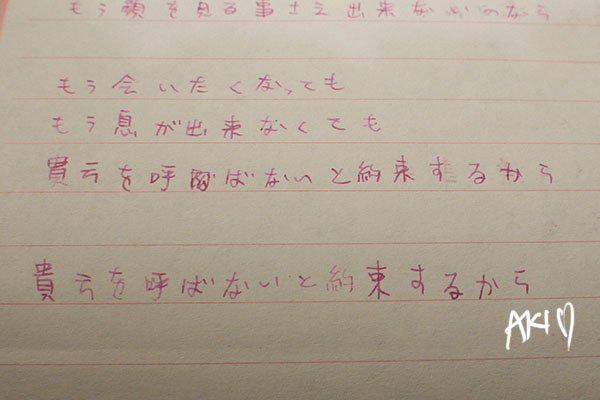 もう顔を見る事さえ出来ないのなら
もう会いたくなっても
もう息が出来なくても
貴方を呼ばないと約束するから
貴方を呼ばないと約束するから
AKI♡